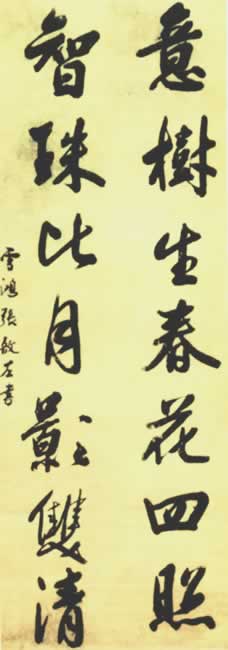 意樹生春花四照
智珠比月影雙清
雪鴻張敏左書